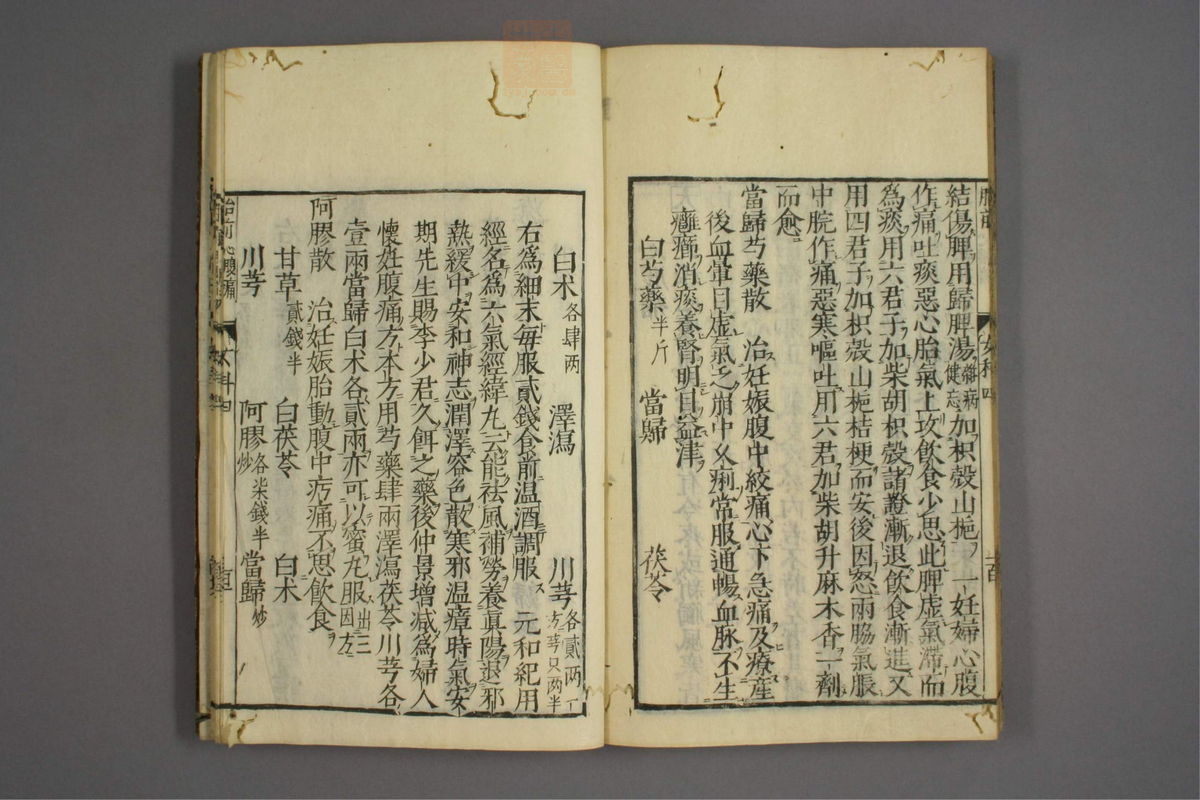 結傷脾用歸脾湯雜病健忘加枳殼山梔一妊婦心腹
作痛吐痰惡心胎氣上攻飲食少思此脾虛氣滯而
為痰用六君子加柴胡枳殼諸證漸退飲食漸進又
用四君子加枳殼山梔桔梗而安後因怒兩脇氣脹
中脘作痛惡寒嘔吐用六君加柴胡升麻木香一劑
而愈
當歸芍藥散 治妊娠腹中絞痛心下急痛及療產
後血暈目虛氣乏崩中久痢常服通暢血脉不生
癰癤消痰養腎明目益津
白芍藥半斤 當歸 茯苓
白术各肆兩 澤瀉 川芎各貳兩一方芎只兩半
右為細末每服貳錢食前温酒調服 元和紀用
經名為六氣經緯丸云能祛風補勞養真陽退邪
熱緩中安和神志潤澤容色散寒邪温瘴時氣安
期先生賜李少君久餌之藥後仲景增減為婦人
懷姙腹痛方本方用芍藥肆兩澤瀉茯苓川芎各
壹兩當歸白术各貳兩亦可以蜜丸服出三因左
阿膠散 治妊娠胎動腹中疞痛不思飲食
甘草貳錢半 白茯苓 白术
川芎 阿膠炒各柒錢半 當歸炒
女科四